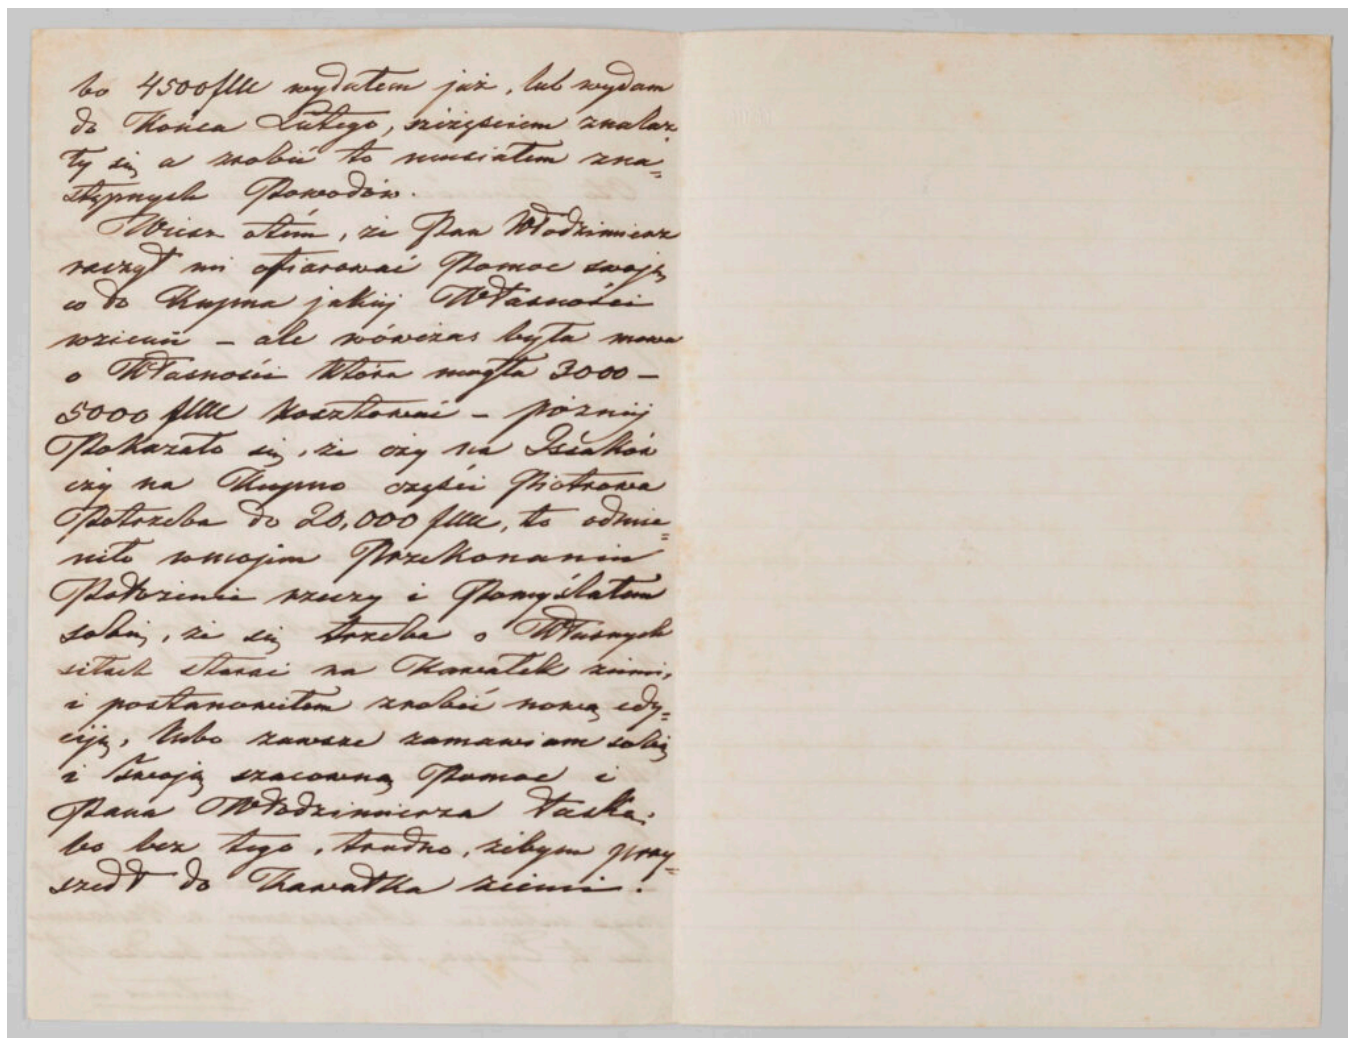 bo 4500 flW wydałem już, lub wydam
do Końca Lutego, szczęściem znalaz
ły się a zrobić to musiałem zna=
stępnych Powodów.
Wiesz otém, że Pan Włodzimierz
raczył mi ofiarować Pomoc swoję,
co do Kupna jakiej Własności
wziemi – ale wówczas była mowa
o Własności Która mogła 3000 –
5000 flW Kosztować – później
Pokazało się, że czy na Issaków
czy na Kupno części Piotrowa
Potrzeba do 20,000 flW, to odmie=
niło wmojem Przekonaniu
Położenie rzeczy i Pomyślałem
sobie, że się trzeba o Własnych
siłach starać na Kawałek ziemi,
i postanowiłem zrobić nową edy=
ciję, lubo zawsze zamawiam sobie
i Twoją szacowną Pomoc i
Pana Włodzimierza łaskę.
bo bez tego, trudno, żebym przy=
szedł do Kawałka ziemi.